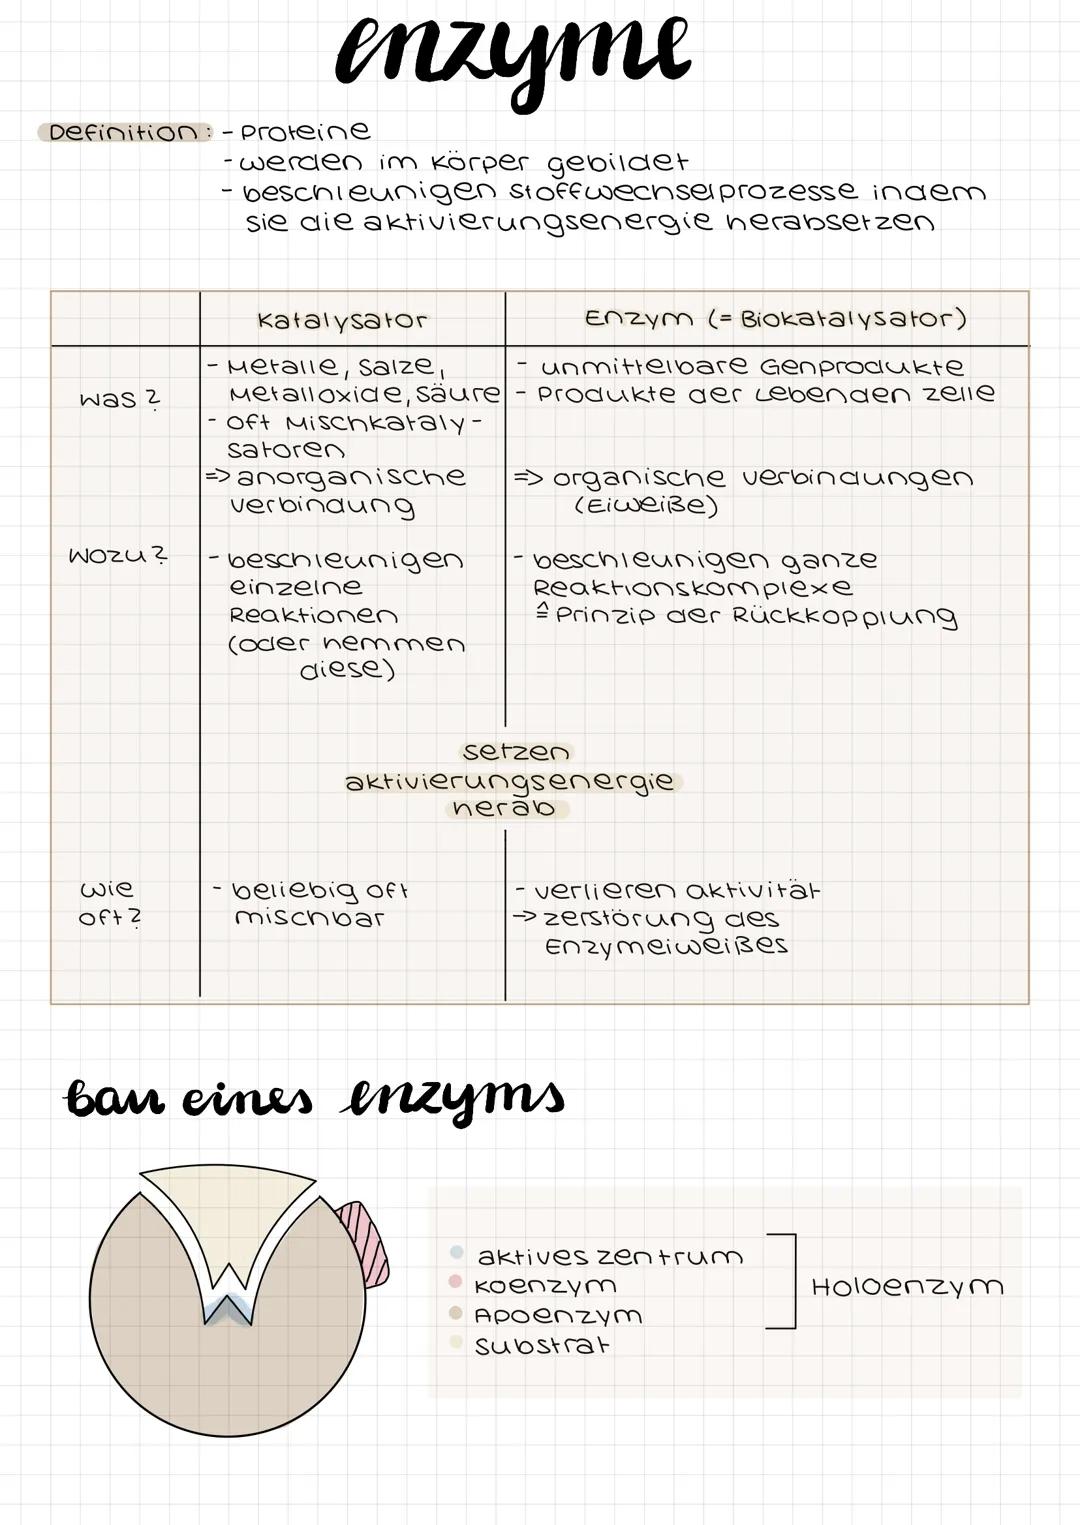 enzyme
Definition: - Proteine
- werden im Körper gebildet
- beschleunigen Stoffwechselprozesse indem
sie die Aktivierungsenergie herabsetzen
Katalysator
Enzym (= Biokatalysator)
was?
- Metalle, Salze,
Metalloxide, Säure
- oft Mischkataly-
satoren
=> anorganische
Verbindung
- unmittelbare Genprodukte
- Produkte der Lebenden Zelle
=> organische Verbindungen
(Eiweiße)
wozu?
- beschleunigen
einzelne
Reaktionen
(oder hemmen
diese)
- beschleunigen ganze
Reaktionskomplexe
≙ Prinzip der Rückkopplung
setzen
Aktivierungsenergie
herab
wie
oft?
- beliebig oft
mischbar
- verlieren Aktivität
→ Zerstörung des
Enzymeiweißes
bau eines enzyms
aktives Zentrum
Koenzym
Apoenzym
Substrat
Holoenzym